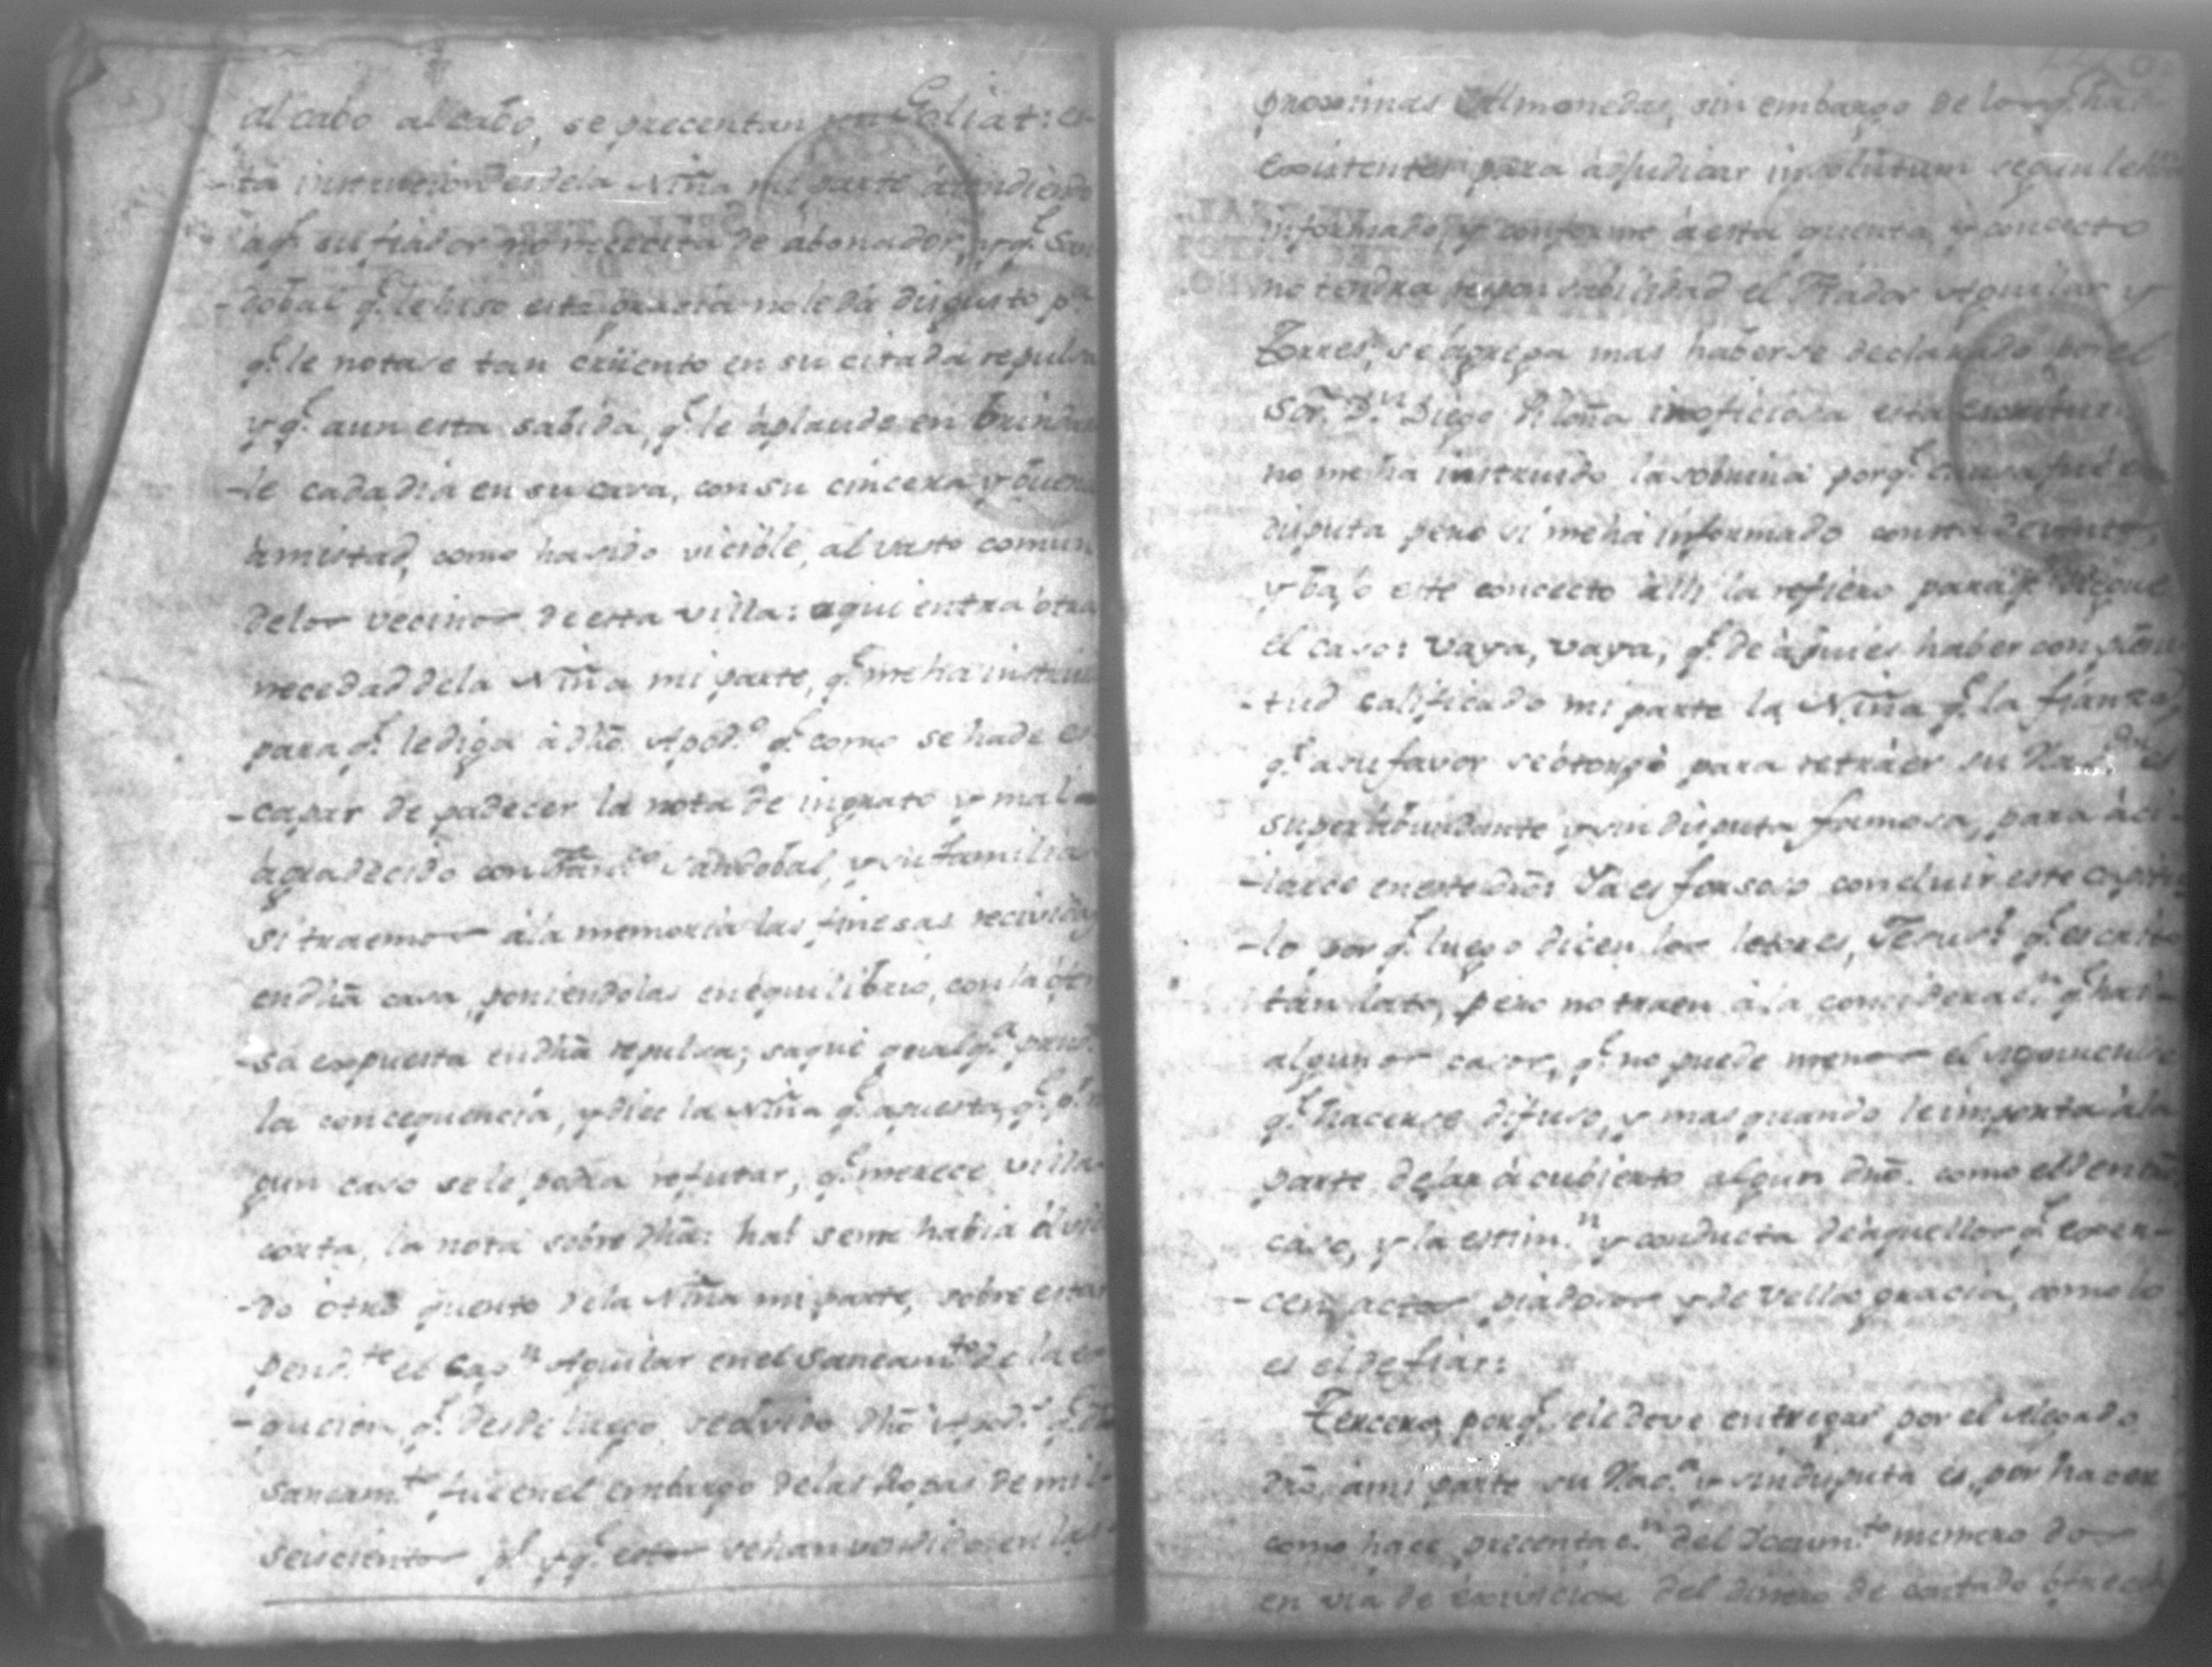 al cabo al cabo, se precentan un Goliat: es-
-ta instruccion desde la Niña mi parte atendiendo
aq.e su fiador no necesita de abonador, y q.e San-
-dobal q.e le hiso esta gracia no le dá disgusto p.a
q.e le notase tan crüento en su citada repulsa
y q.e aun esta sabida, q.e le aplaude en brindar
-le cada dia en su casa, con su cincera y buena
amistad, como ha sido vicible, al vasto comun
delos vecinos de esta villa: aqui entra otra
necedad dela Niña mi parte, q.e me ha instrui
para q.e le diga à dho Apod.o q.e como se ha de es
-capar de padecer la nota de ingrato y mal
agradecido con Fran.co Sandobal, y su familia
si traemos ála memoria las finesas recividas
en dha casa, poniendolas en equilibrio, con la ót
-sa expuesta en dha repulsa; saque qualq.a
la concequencia, y dice la Niña q.e apuesta, q.e
gun caso sele podra refutar, q.e merece villa
corta, la nota sobre dha: ha! seme habia olvi
-do otro quento dela Niña mi parte, sobre estar
pend.te el Cap.n Aguilar en el Saneam.to de la e
-gucion, q.e desde luego se olvido dho Apod.o q.e
Saneam.to fue en el embargo delas Ropas de mil
seiscientos p.s y q.e estos se han vendido en las
proximas Almonedas, sin embargo de los q.e ha
existentes para adjudicar insolutum segun le han
informado, y conforme á esta quenta, y concecto
no tendra responsabilidad el Fiador Aguilar y
Torres, se agrega mas haberse declarado por el
Sor. D.n Diego Aloña inoficiosa esta escritura
no me ha instruido la sobrina porq.e causa fué
disputa pero si me ha informado consta de autos,
y bajo este concecto alli la refiero para q.e
el caso: vaya, vaya, q.e de aqui es haber con plení
-tud calificado mi parte la Niña q.e la fianza,
q.e a su favor se ótorgó para retraer su Hac.da es
superabundante y sin disputa famosa, para
en este dia: Ya es forsoso concluir este capitu
-lo por q.e luego dicen los letores, Jesus! q.e escrito
tan lato, pero no traen á la concidera.n q.e hai
algunos casos, q.e no puede menos el
q.e hacerse difuso, y mas quando le importa ála
parte dejar á cubierto algun dro. como el den
caso, y la estim.n y conducta de aquellos q.e exer-
-cen actos piadosos y de vella gracia, como lo
es el de fiar:
Tercero, porq.e sele deve entregar por el Alegado
dro, ami parte su Hac.a y sin disputa es, por hacer
como hace precentac.n del docum.to numero dos
en via de exivicion del dinero de contado